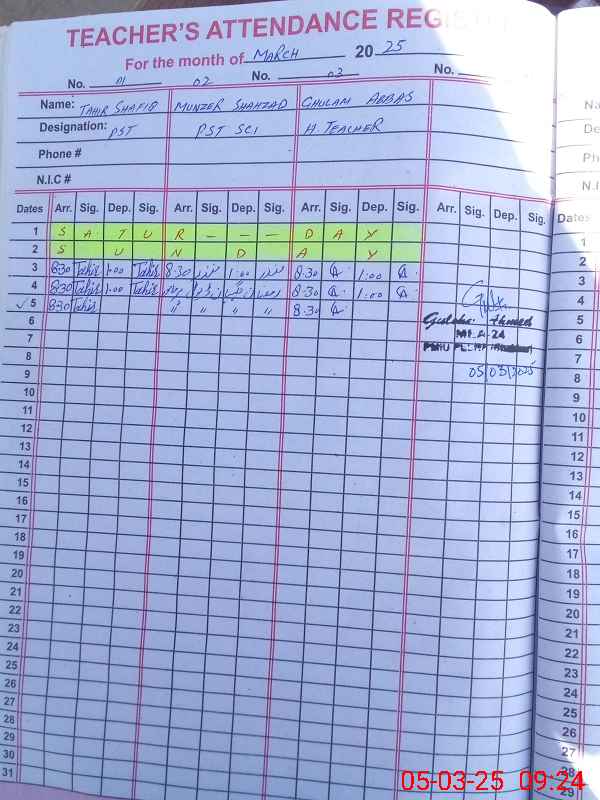 TEACHER'S ATTENDANCE
For the month of MARCH 2025
No. 01 02 No. 03 No.
Name: TAHIR SHAFIQ MUNZER SHAHZAD GHULAM ABBAS
Designation: PST PST SCI H. TEACHER
Phone #
N.I.C #
Dates Arr. Sig. Dep. Sig. Arr. Sig. Dep. Sig. Arr. Sig. Dep. Sig. Arr. Sig. Dep. Sig. Dates
1 S A T U R - - - D A Y 1
2 S U N D A Y 2
3 8:30 Tahir 1:00 Tahir 8:30 منذر 1:00 منذر 8:30 1:00 3
4 8:30 Tahir 1:00 Tahir 8:30 1:00 4
✓5 8:30 Tahir " " " " 8:30 5
Ahmed
MEA-24
6 6
7 7
05/03/2025
8 8
9 9
10 10
11 11
12 12
13 13
14 14
15 15
16 16
17 17
18 18
19 19
20 20
21 21
22 22
23 23
24 24
25 25
26 26
27 27
28 28
29 29
30
31
05-03-25 09:24